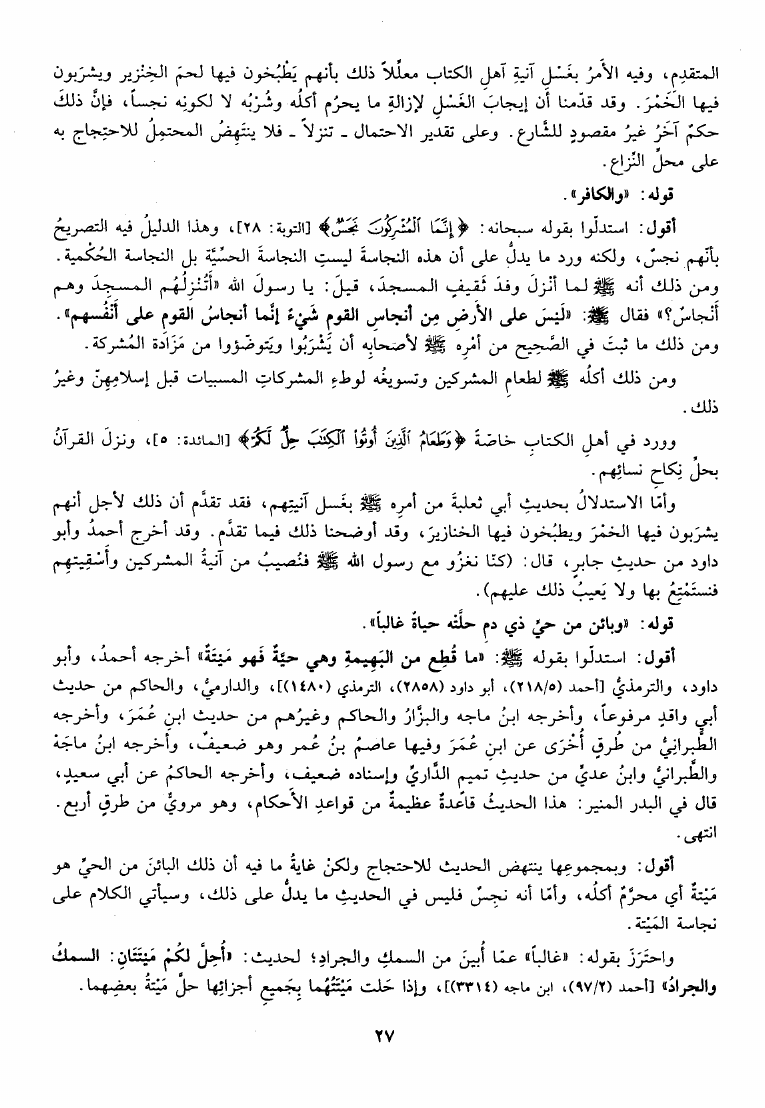 المتقدِم، وفيه الأمرُ بغَسْلِ آنيةِ آهلِ الكتاب معلِّلاً ذلك بأنهم يَطْبُخون فيها لحمَ الخِنْزير ويشرَبون
فيها الخَمْرَ. وقد قدّمنا أن إيجابَ الغَسْلِ لإزالةِ ما يحرُم أكلُه وشُرْبُه لا لكونِه نجساً، فإنَّ ذلكَ
حكمٌ آخَرُ غيرُ مقصودٍ للشَّارعِ. وعلى تقدير الاحتمال ـ تنزلاً ـ فلا ينتَهِضُ المحتمِلُ للاحتِجاج به
على محلِّ النِّزاع.
قوله: «والكافر».
أقول: استدلّوا بقوله سبحانه: ﴿إِنَّمَا الْمُشْرِكُونَ نَجَسٌ﴾ [التوبة: ٢٨]، وهذا الدليلُ فيه التصريحُ
بأنّهم نجسٌ، ولكنه ورد ما يدلُّ على أن هذه النجاسةَ ليستِ النجاسةَ الحسِّيَّة بل النجاسة الحُكْمية.
ومن ذلك أنه ﷺ لما أنْزلَ وفدَ ثَقيفٍ المسجدَ، قيلَ: يا رسولَ الله «أَتُنْزِلُهُم المسجدَ وهم
أنجاسٌ؟» فقال ﷺ: «لَيْسَ على الأرضِ مِن أنجاسِ القوم شَيْءٌ إنَّما أنجاسُ القومِ على أنْفُسهم».
ومن ذلك ما ثبتَ في الصَّحِيح من أمْرِه ﷺ لأصحابِه أن يَشْرَبُوا ويَتوضّؤوا من مَزَادة المُشركة.
ومن ذلك أكلُه ﷺ لطعامِ المشركين وتسويغُه لوطءِ المشركاتِ المسبيات قبل إسلامِهِنّ وغيرُ
ذلك.
وورد في أهلِ الكتابِ خاصّةً ﴿وَطَعَامُ الَّذِينَ أُوتُوا الْكِتَابَ حِلٌّ لَكُمْ﴾ [المائدة: ٥]، ونزلَ القرآنُ
بحلِّ نِكاحِ نسائِهم.
وأمّا الاستدلالُ بحديثِ أبي ثعلبةَ من أمرِه ﷺ بغَسل آنيتِهم، فقد تقدَّم أن ذلك لأجل أنهم
يشرَبون فيها الخمْرَ ويطبُخون فيها الخنازيرَ، وقد أوضحنا ذلك فيما تقدَّم. وقد أخرج أحمدُ وأبو
داود من حديثِ جابرٍ، قال: (كنّا نغزُو مع رسول الله ﷺ فنُصيبُ من آنيةُ المشركين وأسْقِيتِهم
فنستَمْتِعُ بها ولا يَعيبُ ذلك عليهم).
قوله: «وبائن من حيِّ ذي دم حلَّته حياةٌ غالباً».
أقول: استدلّوا بقوله ﷺ: «ما قُطِع من البَهِيمةِ وهي حيَّةٌ فَهو مَيْتَةٌ» أخرجه أحمدُ، وأبو
داود، والترمذيُّ [أحمد (٢١٨/٥)، أبو داود (٢٨٥٨)، الترمذي (١٤٨٠)]، والدارميُّ، والحاكم من حديث
أبي واقدٍ مرفوعاً، وأخرجه ابنُ ماجه والبزَّارُ والحاكم وغيرُهم من حديث ابنِ عُمَرَ، وأخرجه
الطَّبرانِيُّ من طُرقٍ أُخْرَى عن ابنِ عُمَرَ وفيها عاصمُ بنُ عُمر وهو ضعيفٌ، وأخرجه ابنُ ماجَهْ
والطَّبرانيُّ وابنُ عديٍّ من حديثِ تميم الدَّاريِّ وإسناده ضعيف، وأخرجه الحاكمُ عن أبي سعيدٍ،
قال في البدر المنير: هذا الحديثُ قاعدةٌ عظيمةٌ من قواعدِ الأحكام، وهو مرويٌّ من طرقٍ أربع.
انتهى.
أقول: وبمجموعِها ينتهض الحديث للاحتجاج ولكنْ غايةُ ما فيه أن ذلك البائنَ من الحيِّ هو
مَيْتةٌ أي محرَّمٌ أكلُه، وأمّا أنه نجِسٌ فليس في الحديثِ ما يدلُّ على ذلك، وسيأتي الكلام على
نجاسة المَيْتة.
واحتَرَزَ بقوله: «غالباً» عمّا أُبينَ من السمكِ والجرادِ؛ لحديث: «أُحِلَّ لكُمْ مَيْتَتَانِ: السمكُ
والجرادُ» [أحمد (٩٧/٢)، ابن ماجه (٣٣١٤)]، وإذا حَلت مَيْتَتُهُما بِجَميعِ أجزائِها حلَّ مَيْتةُ بعضِهما.
٢٧